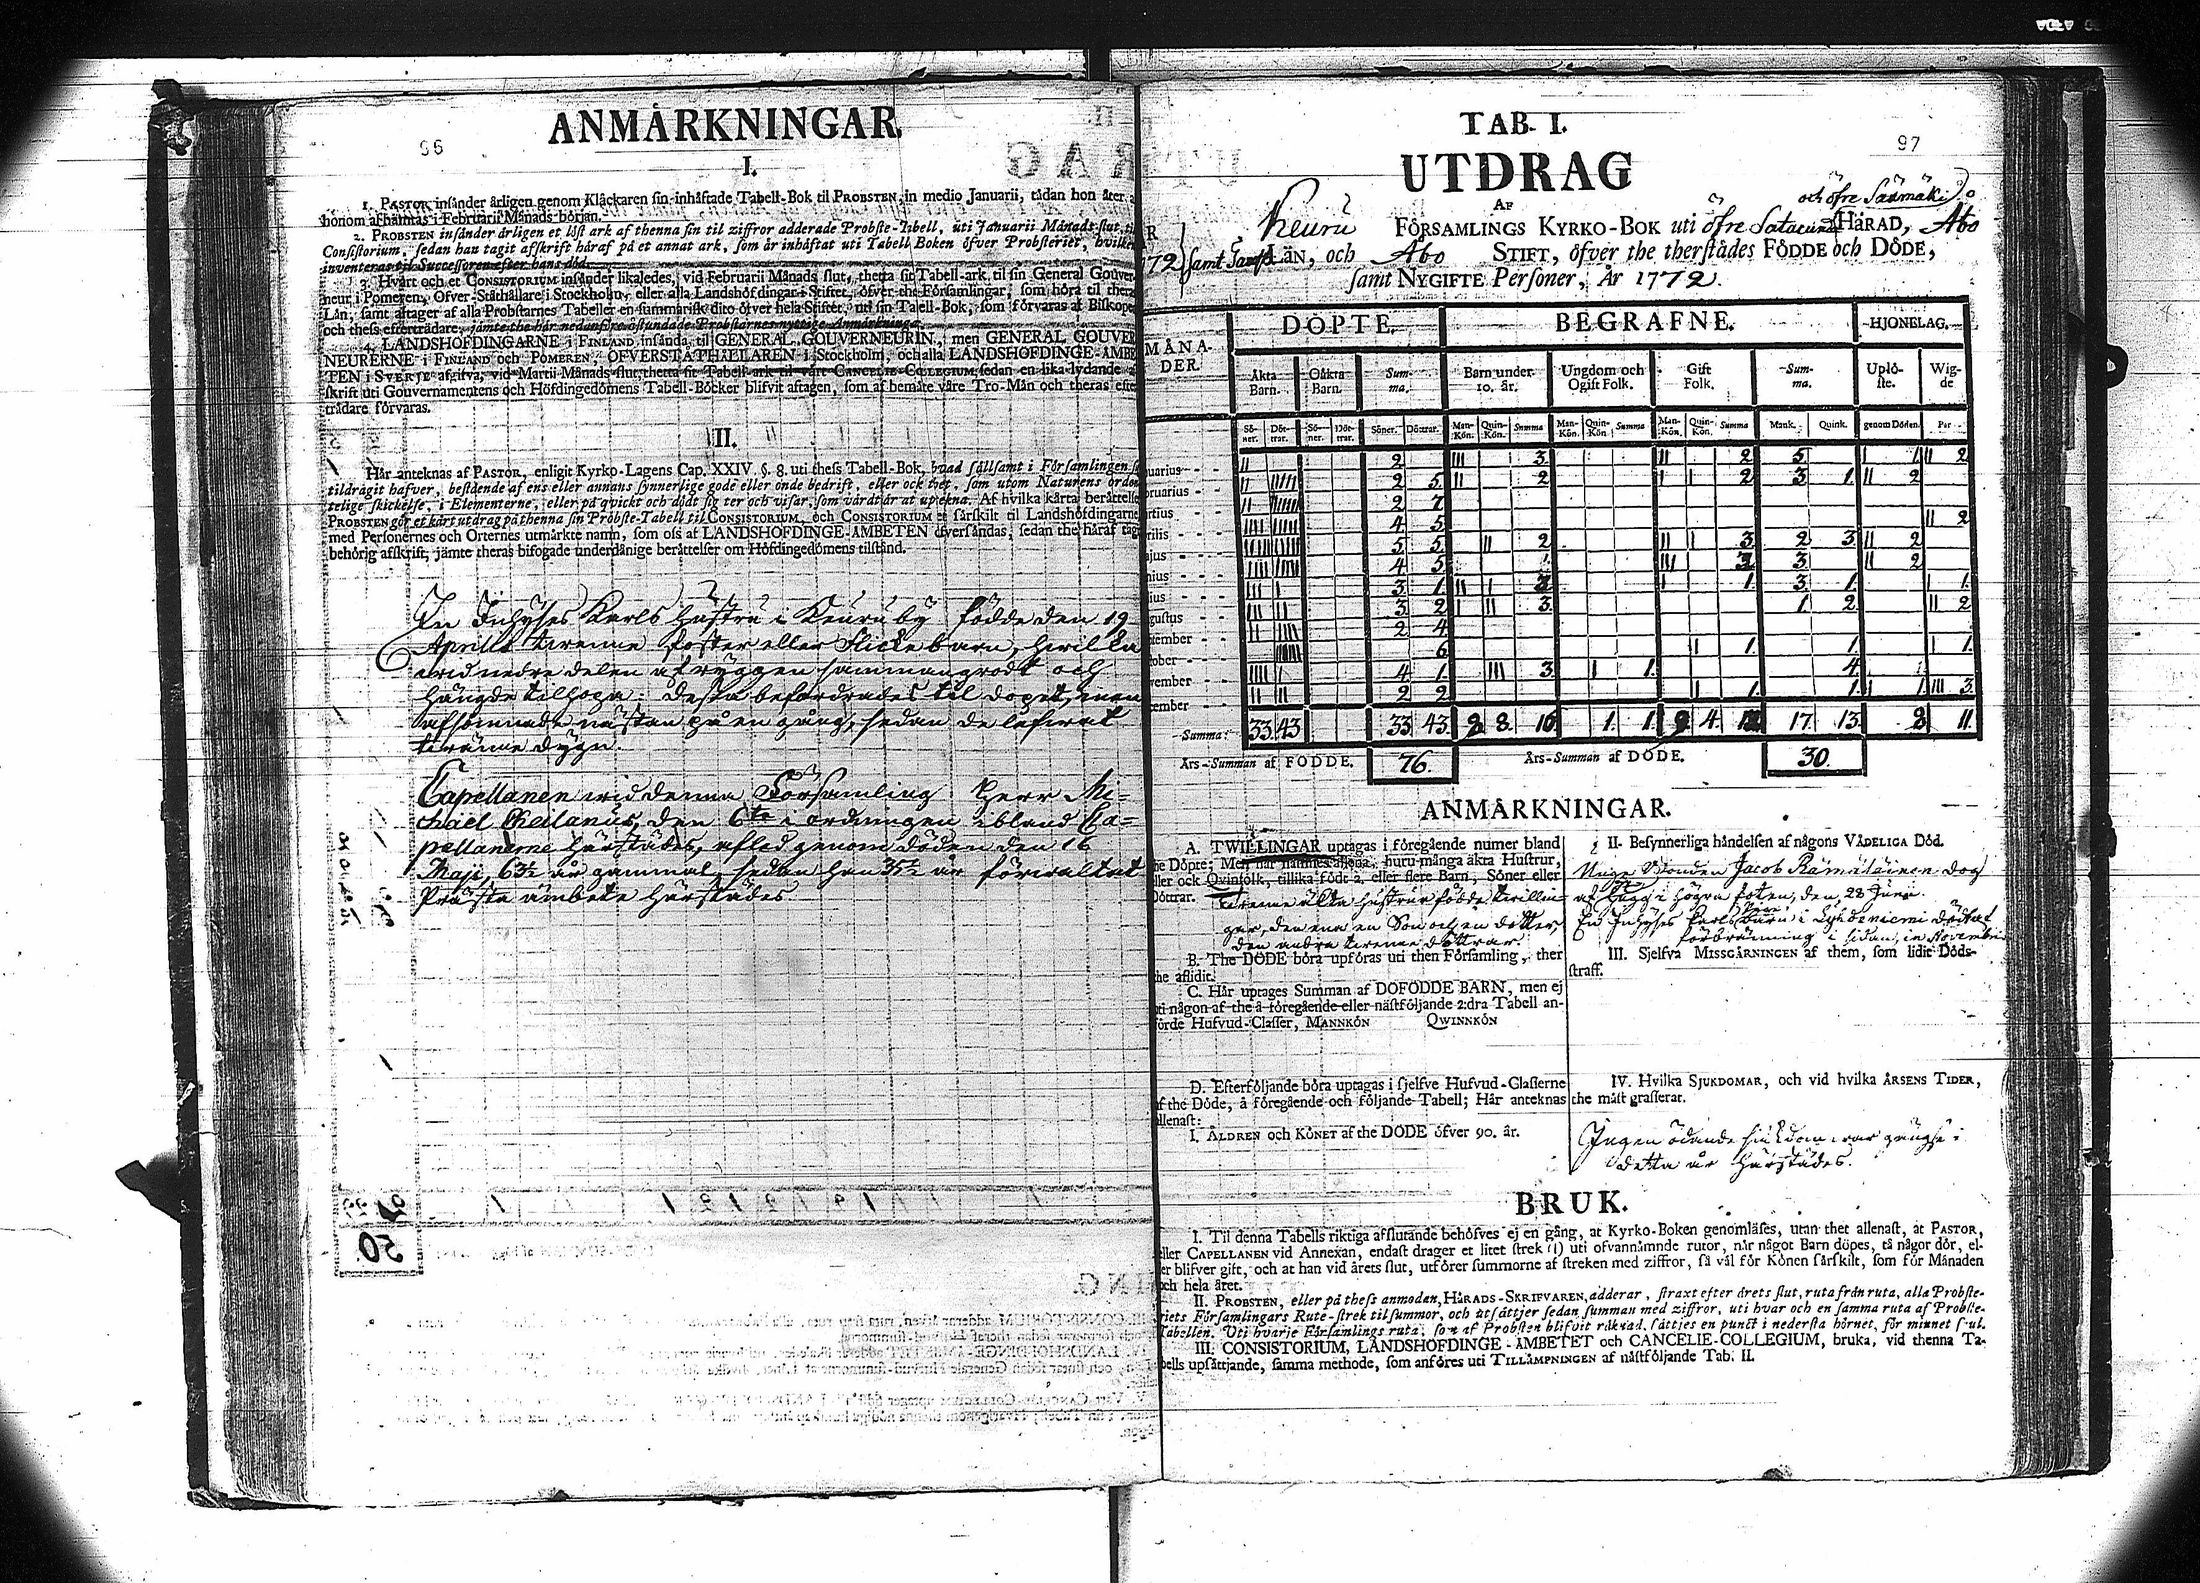 96
ANMÄRKNINGAR.
I.
1. PASTOR insänder årligen genom Klåckaren sin inhäftade Tabell-Bok til PROBSTEN, in medio Januarii, tädan hon åter
honom afhämtas i Februarii Månads början.
2. PROBSTEN insänder årligen et löst ark af thenna sin til ziffror adderade Probste-Tabell, uti Januarii Månads slut, til
Consistorium, sedan han tagit afskrift häraf på et annat ark, som är inhäftat uti Tabell Boken öfver Probsteriet, hvilken
inventeras til Successoren efter hans död.
3. Hvart och et CONSISTORIUM insänder likaledes, vid Februarii Månads slut, thetta sit Tabell-ark til sin General Gouver-
neur i Pomeren, Öfver-Ståthållare i Stockholm, eller alla Landshöfdingar i Stiftet, öfver the Församlingar, som höra til thera
Län, samt aftager af alla Probstarnes Tabeller en summarisk dito öfver hela Stiftet, uti sin Tabell-Bok, som förvaras af Biskopen
och thess efterträdare, jämte the här nedanföre åstundade Probstarnes nyttige Anmärkningar.
4. LANDSHÖFDINGARNE i FINLAND insända til GENERAL GOUVERNEURIN, men GENERAL GOUVER-
NEURERNE i FINLAND och POMEREN, ÖFVERSTÅTHÅLLAREN i Stockholm, och alla LANDSHÖFDINGE-ÄMBE-
TEN i SVERJE afgifva, vid Martii Månads slut, thetta sit Tabell-ark til vårt CANCELIE-COLLEGIUM, sedan en lika lydande af-
skrift uti Gouvernamentens och Höfdingedömens Tabell-Böcker blifvit aftagen, som af bemälte våre Tro-Män och theras efter-
trädare förvaras.
II.
Här anteknas af PASTOR, enligit Kyrko-Lagens Cap. XXIV. §. 8. uti thess Tabell-Bok, hvad sällsamt i Församlingen
tildragit hafver, bestående af ens eller annans synnerlige gode eller onde bedrift, eller ock thet, som utom Naturens orden-
telige skickelse, i Elementerne, eller på qvickt och dödt sig ter och visar, som värdt är at upptekna. Af hvilka kårta berättelser
PROBSTEN gör et kårt utdrag på thenna sin Probste-Tabell til CONSISTORIUM, och CONSISTORIUM et särskilt til Landshöfdingarne
med Personernes och Orternes utmärkte namn, som oss af LANDSHÖFDINGE-ÄMBETEN öfversändas, sedan the häraf tagit
behörig afskrift, jämte theras bifogade underdånige berättelser om Höfdingedömens tilstånd.
En Inhyses Karls hustru i Keuru by födde den 19
Aprilis tvenne foster eller Flickebarn, hvilka
vid nedre delen af ryggen sammangrodt och
hängde tilhopa. Dessa befordrades til dopet, men
afsomnade nästan på en gång, sedan de lefvat
tvänne dygn.
Capellanen vid denna Församling Herr Mi=
chael Cheilanus, den 6te i ordningen ibland Ca=
pellanerne härstädes, afled genom döden den 16
Maji, 63½ år gammal, sedan han 35½ år förvaltat
Prästa ämbete härstädes.
97
TAB. I.
UTDRAG
AF
och öfre Säxmäki
Keuru FÖRSAMLINGS KYRKO-BOK uti öfre Satacunda HÄRAD, Åbo
LÄN, och Åbo STIFT, öfver the therstädes FÖDDE och DÖDE,
samt NYGIFTE Personer, År 1772.
MÅNA-DER. DÖPTE. BEGRAFNE. HJONELAG.
Äkta Barn. Oäkta Barn. Sum-ma. Barn under 10. år. Ungdom och Ogift Folk. Gift Folk. Sum-ma. Uplö-ste. Wig-de
Sö-ner. Döt-trar. Sö-ner. Döt-trar. Söner. Döttrar. Man-Kön. Quin-Kön. Summa Man-Kön. Quin-Kön Summa Man-Kön. Quin-Kön. Summa Mank. Quink. genom Döden. Par
nuarius - - II 2 III 3 II 2 5 I 1 II 2
bruarius - - II IIIII 2 5 II 2 I I 2 3 1 II 2
rtius - - II IIIIIII 2 7
rilis - - IIII IIIII 4 5 II 2
ajus - - IIIII IIIII 5 5 II 2 II I 3 2 3 II 2
nius - - IIII IIIII 4 5 1 III 3 3 II 2
lius - - III I 3 1 II I 3 I 1 3 1 I 1
gustus - - III II 3 2 I II 3 1 2 II 2
tember - - II IIII 2 4
tober - - IIIIII 6 I 1 1 I 1
vember - - IIII I 4 1 III 3 I 1 4
cember - - II II 2 2 I 1 1 I 1 III 3
Summa: 33 43 33 43 8 1 1 4 17 13 11
Års-Summan af FÖDDE. 76. Års-Summan af DÖDE. 30.
ANMÄRKNINGAR.
A. TWILLINGAR uptagas i föregående numer bland
the Döpte: Men här nämnes allena, huru många äkta Hustrur,
eller ock Qvinfolk, tillika födt 2. eller flere Barn, Söner eller
Döttrar. tvenne äkta hustrur födde tvillin-
gar, den ena en Son och en dotter
den andra tvenne döttrar
B. The DÖDE böra upföras uti then Församling, ther
the aflidit.
C. Här uptages Summan af DÖFÖDDE BARN, men ej
uti någon af the å föregående eller nästföljande 2:dra Tabell an-
förde Hufvud-Classer, MANNKÖN QWINNKÖN
D. Efterföljande böra uptagas i sjelfve Hufvud-Classerne
af the Döde, å föregående och följande Tabell; Här anteknas
allenast:
I. ÅLDREN och KÖNET af the DÖDE öfver 90. år.
II. Besynnerliga händelsen af någons VÅDELIGA Död.
Unge Bonden Jacob Rämäläinen dog
af hugg i högra foten, den 28 Junii
En Inhyses Karls barn i Lyhdeniemi dödt af
förbränning i sidan, in Novembri
III. Sjelfva MISSGÄRNINGEN af them, som lidit Döds-
straff.
IV. Hvilka SJUKDOMAR, och vid hvilka ÅRSENS TIDER,
the mäst grasserat.
Ingen ödande siukdom var gängse i
detta år härstädes.
BRUK.
I. Til denna Tabells riktiga afslutande behöfves ej en gång, at Kyrko-Boken genomläses, utan thet allenast, at PASTOR,
eller CAPELLANEN vid Annexan, endast drager et litet strek (I) uti ofvannämnde rutor, när något Barn döpes, tå någor dör, el-
er blifver gift, och at han vid årets slut, utförer summorne af streken med ziffror, så väl för Könen särskilt, som för Månaden
och hela året.
II. PROBSTEN, eller på thess anmodan, HÄRADS-SKRIFVAREN, adderar, straxt efter årets slut, ruta från ruta, alla Probste-
riets Församlingars Rute-strek til summor, och utsättjer sedan summan med ziffror, uti hvar och en samma ruta af Probste-
Tabellen. Uti hvarje Församlings ruta, som af Probsten blifvit räknad, sättjes en punct i nedersta hörnet, för minnet skul.
III. CONSISTORIUM, LANDSHÖFDINGE-ÄMBETET och CANCELIE-COLLEGIUM, bruka, vid thenna Ta-
bells upsättjande, samma methode, som anföres uti TILLÄMPNINGEN af nästföljande Tab. II.